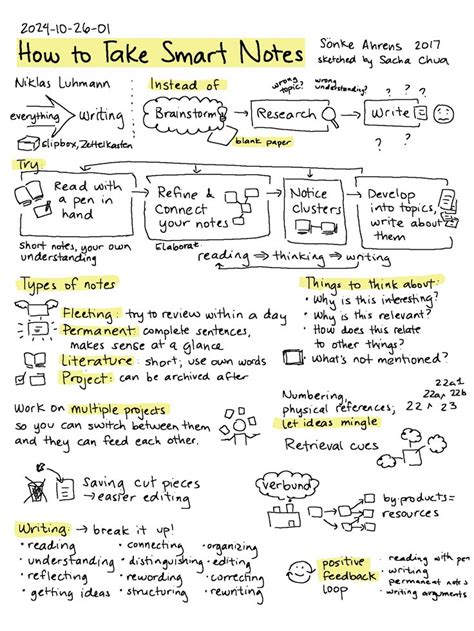 2024-10-26-01
How to Take Smart Notes
Sönke Ahrens 2017
sketched by Sacha Chua
Niklas Luhmann
everything
writing
slipbox, Zettelkasten
Instead of
Brainstorm
blank paper
wrong topic?
Research
wrong understanding?
Write
? ? ?
? ?
Try
Read with
a pen in
hand
Short notes, your own
understanding
Refine &
Connect
your notes
Elaborate
Notice
clusters
Develop
into topics,
write about
them
reading ⇒ thinking ⇒ writing
Types of notes
Fleeting: try to review within a day
Permanent: complete sentences,
makes sense at a glance
Literature: short, use own words
Project: can be archived after
Things to think about:
• Why is this interesting?
• Why is this relevant?
• How does this relate
to other things?
• What's not mentioned?
Work on multiple projects
so you can switch between them
and they can feed each other.
Numbering,
physical references;
let ideas mingle
22a1
22a 22b
22 23
Retrieval cues
Saving cut pieces
→ easier editing
verbund
by-products=
resources
Writing: → break it up!
• reading
• understanding
• reflecting
• getting ideas
• connecting
• distinguishing
• rewording
• structuring
• organizing
• editing
• correcting
• rewriting
positive
feedback
loop
• reading with pen
• writing
permanent notes
• writing arguments